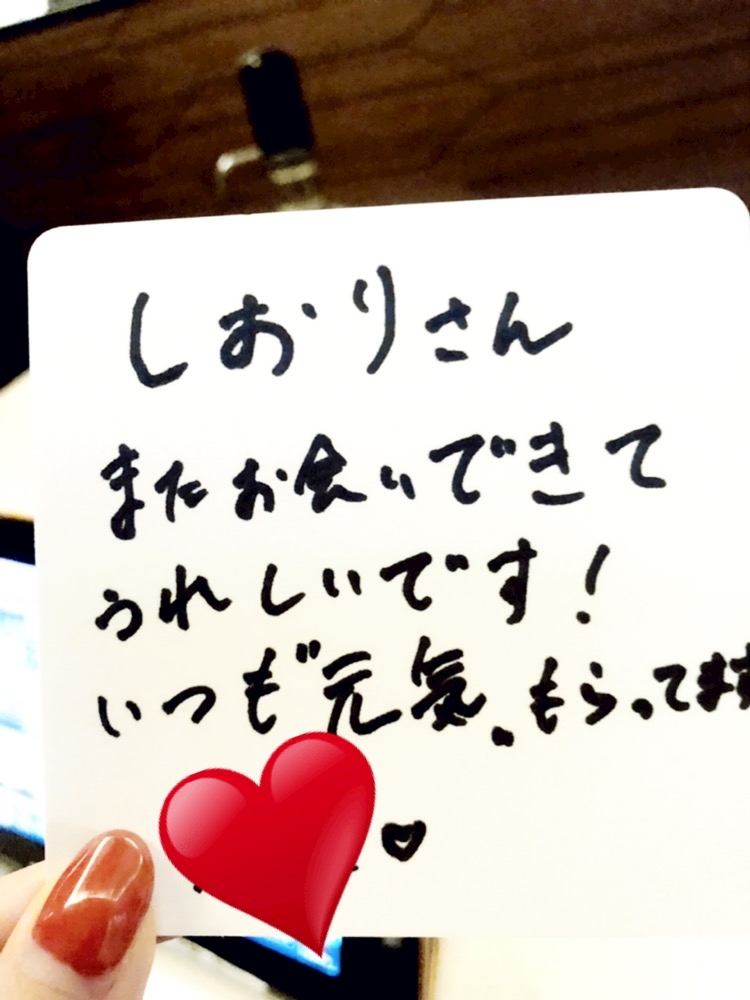 しおりさん
またお会いできて
うれしいです!
いつも"元気〟もらってます
♡